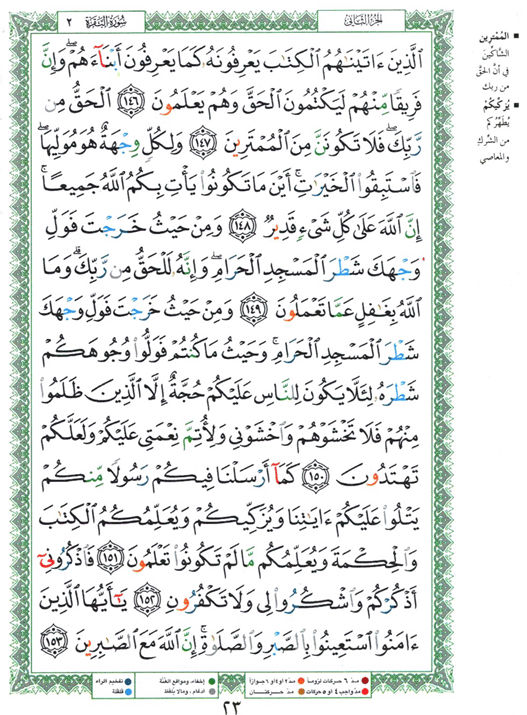 الجزء الثاني
سورة البقرة ٢
ٱلَّذِينَ ءَاتَيْنَٰهُمُ ٱلْكِتَٰبَ يَعْرِفُونَهُۥ كَمَا يَعْرِفُونَ أَبْنَآءَهُمْ ۖ وَإِنَّ
فَرِيقًا مِّنْهُمْ لَيَكْتُمُونَ ٱلْحَقَّ وَهُمْ يَعْلَمُونَ ١٤٦ ٱلْحَقُّ مِن
رَّبِّكَ ۖ فَلَا تَكُونَنَّ مِنَ ٱلْمُمْتَرِينَ ١٤٧ وَلِكُلٍّ وِجْهَةٌ هُوَ مُوَلِّيهَا ۖ
فَٱسْتَبِقُوا۟ ٱلْخَيْرَٰتِ ۚ أَيْنَ مَا تَكُونُوا۟ يَأْتِ بِكُمُ ٱللَّهُ جَمِيعًا ۚ
إِنَّ ٱللَّهَ عَلَىٰ كُلِّ شَىْءٍ قَدِيرٌ ١٤٨ وَمِنْ حَيْثُ خَرَجْتَ فَوَلِّ
وَجْهَكَ شَطْرَ ٱلْمَسْجِدِ ٱلْحَرَامِ ۖ وَإِنَّهُۥ لَلْحَقُّ مِن رَّبِّكَ ۗ وَمَا
ٱللَّهُ بِغَٰفِلٍ عَمَّا تَعْمَلُونَ ١٤٩ وَمِنْ حَيْثُ خَرَجْتَ فَوَلِّ وَجْهَكَ
شَطْرَ ٱلْمَسْجِدِ ٱلْحَرَامِ ۚ وَحَيْثُ مَا كُنتُمْ فَوَلُّوا۟ وُجُوهَكُمْ
شَطْرَهُۥ لِئَلَّا يَكُونَ لِلنَّاسِ عَلَيْكُمْ حُجَّةٌ إِلَّا ٱلَّذِينَ ظَلَمُوا۟
مِنْهُمْ فَلَا تَخْشَوْهُمْ وَٱخْشَوْنِى وَلِأُتِمَّ نِعْمَتِى عَلَيْكُمْ وَلَعَلَّكُمْ
تَهْتَدُونَ ١٥٠ كَمَآ أَرْسَلْنَا فِيكُمْ رَسُولًا مِّنكُمْ
يَتْلُوا۟ عَلَيْكُمْ ءَايَٰتِنَا وَيُزَكِّيكُمْ وَيُعَلِّمُكُمُ ٱلْكِتَٰبَ
وَٱلْحِكْمَةَ وَيُعَلِّمُكُم مَّا لَمْ تَكُونُوا۟ تَعْلَمُونَ ١٥١ فَٱذْكُرُونِىٓ
أَذْكُرْكُمْ وَٱشْكُرُوا۟ لِى وَلَا تَكْفُرُونِ ١٥٢ يَٰٓأَيُّهَا ٱلَّذِينَ
ءَامَنُوا۟ ٱسْتَعِينُوا۟ بِٱلصَّبْرِ وَٱلصَّلَوٰةِ ۚ إِنَّ ٱللَّهَ مَعَ ٱلصَّٰبِرِينَ ١٥٣
الممترين
الشاكين
في أن الحق
من ربك
يزكيكم
يطهركم
من الشرك
والمعاصي
مدّ ٦ حركات لزوماً
مدّ ٢ أو ٤ أو ٦ جوازاً
إخفاء، ومواقع الغنّة
تفخيم الراء
مدّ واجب ٤ أو ٥ حركات
مدّ حركتان
ادغام، ومالا يلفظ
قلقلة
٢٣